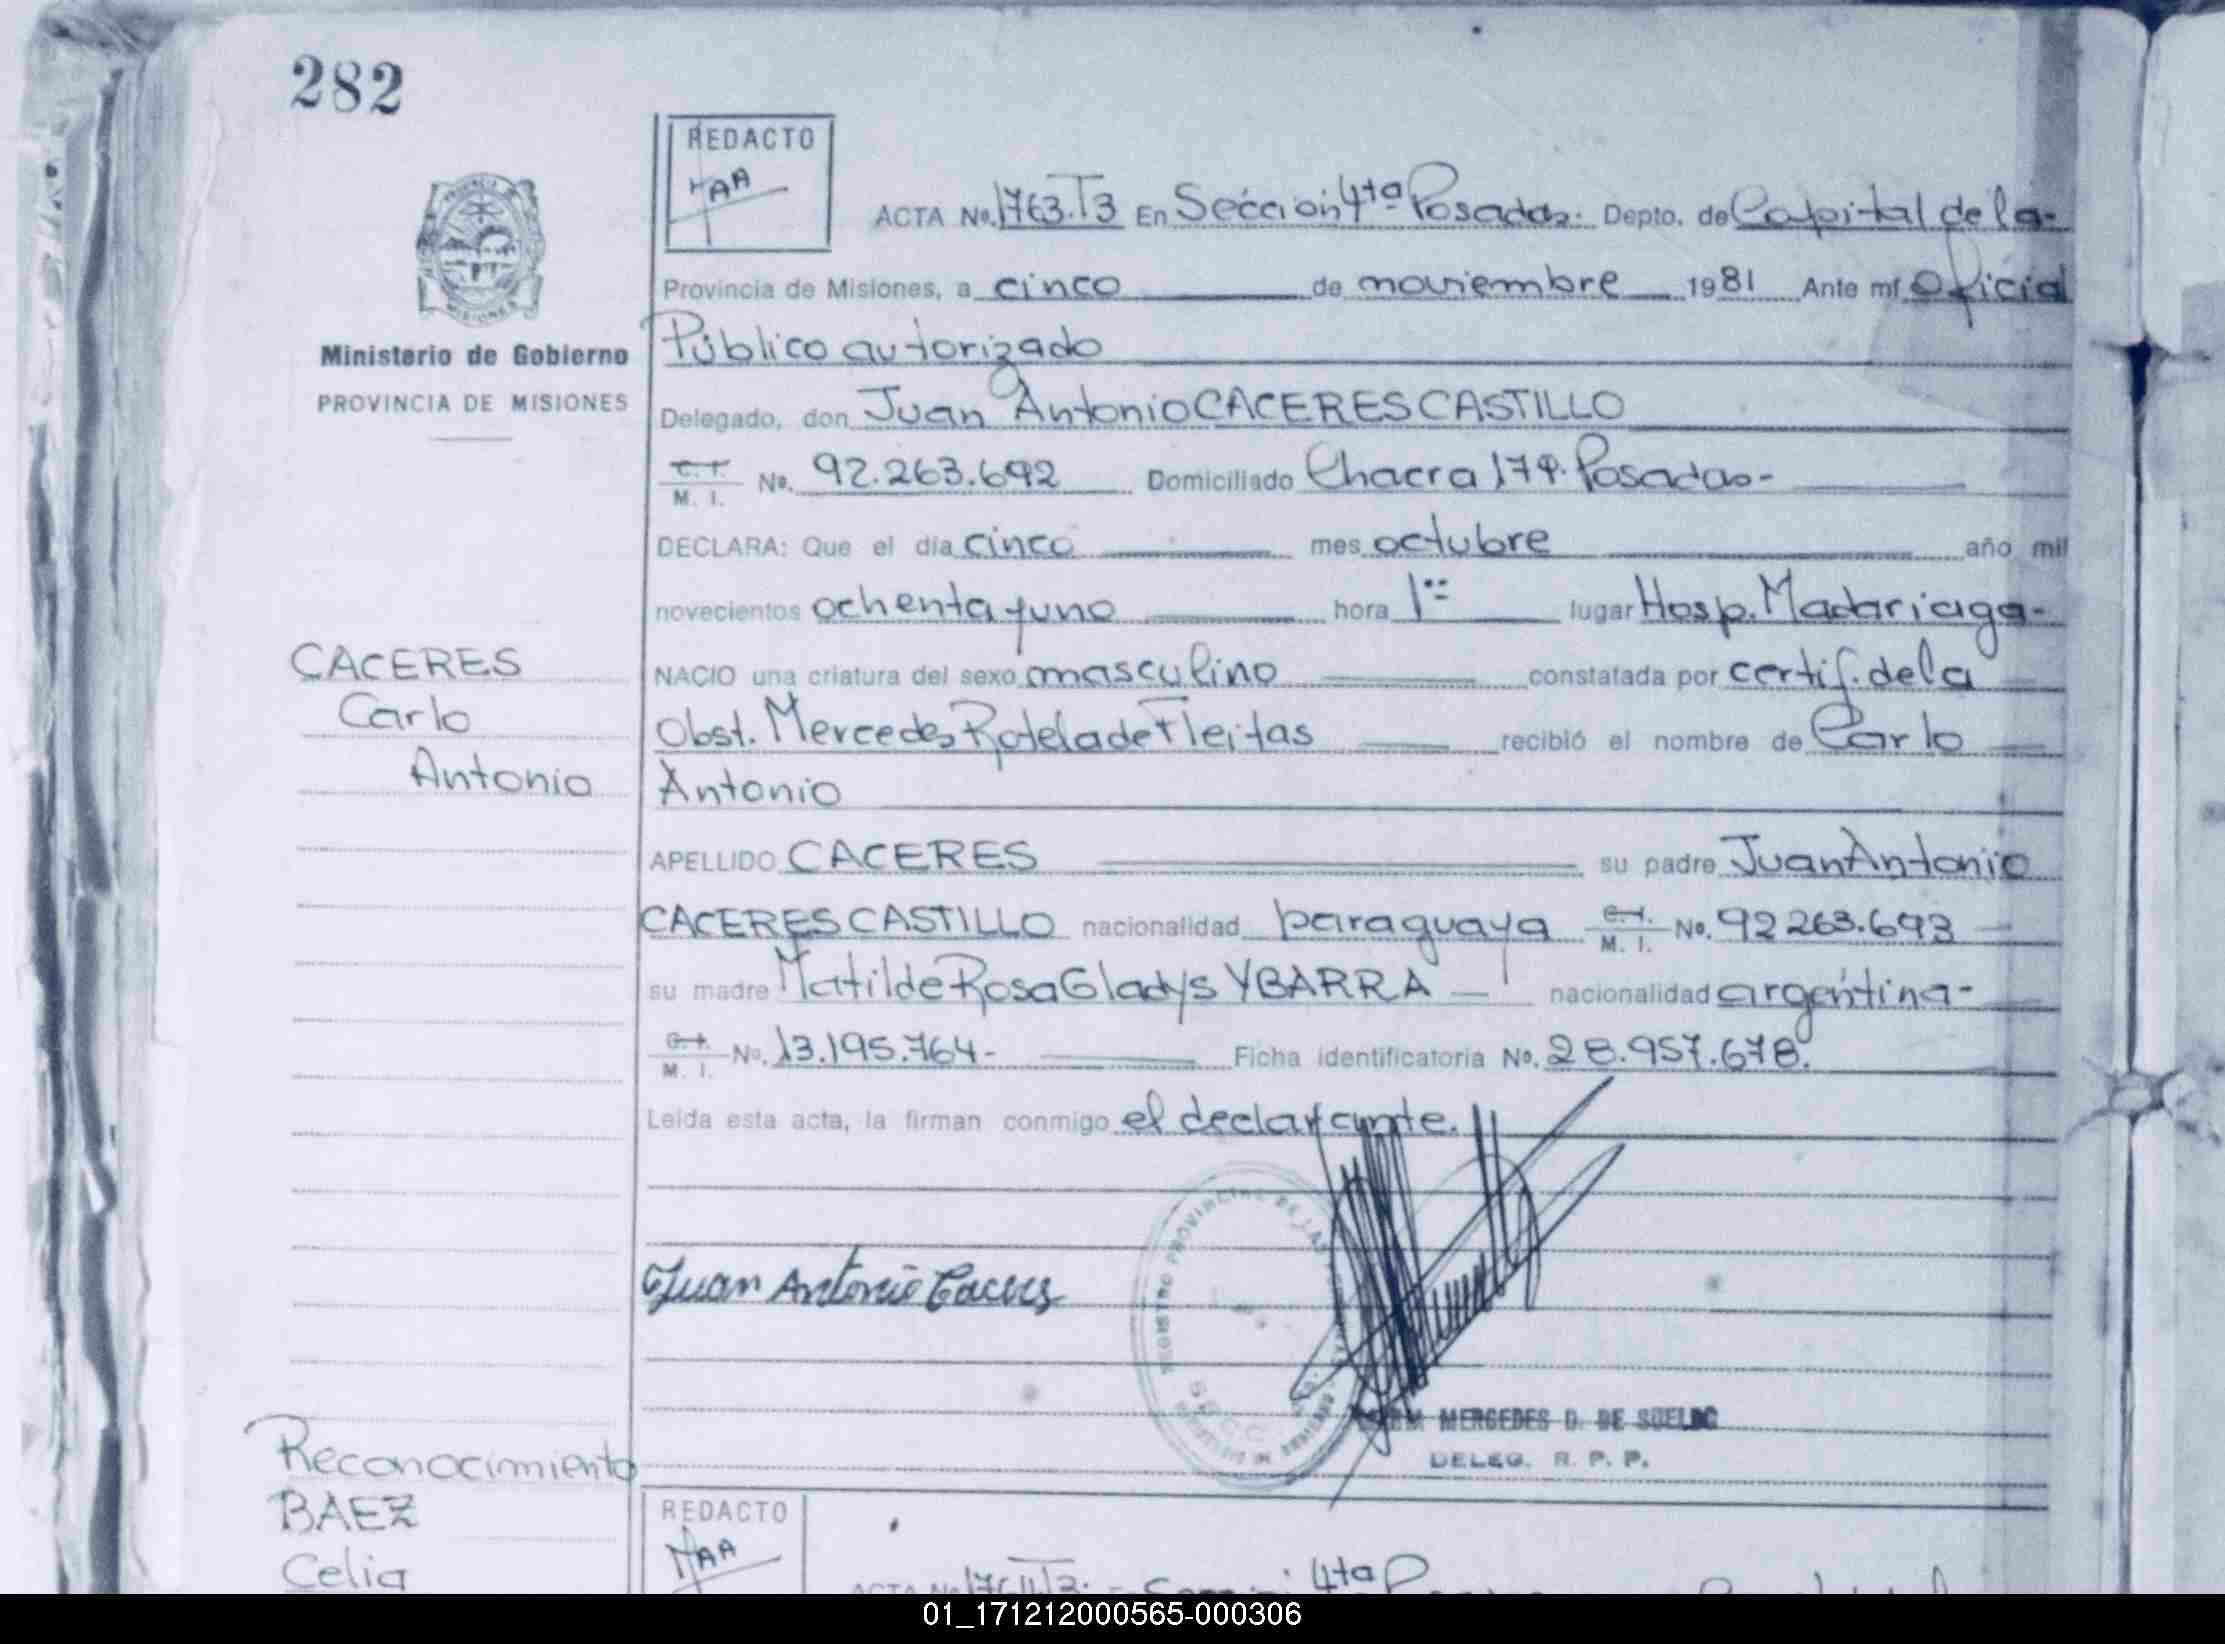 282
REDACTO
ACTA No. 1763.T3 En Sección 4ta Posadas. Depto. de Capital de la-
Provincia de Misiones, a cinco de noviembre 1981 Ante mí Oficial
Ministerio de Gobierno
Público autorizado
PROVINCIA DE MISIONES
Delegado, don Juan Antonio CACERES CASTILLO
C. I. M. I. No. 92.263.692 Domiciliado Chacra 179. Posadas-
DECLARA: Que el día cinco mes octubre año mil
novecientos ochenta y uno hora 1 lugar Hosp. Madariaga-
NACIO una criatura del sexo masculino constatada por certif. de la
CACERES
Carlo
Antonio
Obst. Mercedes Rotela de Fleitas recibió el nombre de Carlo
Antonio
APELLIDO CACERES su padre Juan Antonio
CACERES CASTILLO nacionalidad paraguaya C. I. M. I. No. 92 263.693
su madre Matilde Rosa Gladys YBARRA nacionalidad argentina-
C. I. M. I. No. 13.195.764- Ficha identificatoria No. 28.957.678.
Leída esta acta, la firman conmigo el declarante.
Juan Antonio Caceres
REGISTRO PROVINCIAL DE LAS
MERCEDES D. DE SUELDO
DELEG. R. P. P.
Reconocimiento
BAEZ
Celia
REDACTO
4ta
01_171212000565-000306